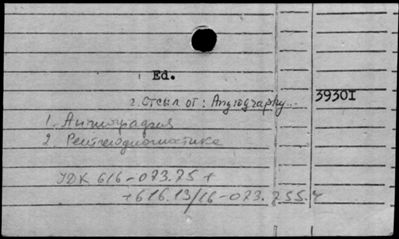 Ed.
2. Отсыл от: Angiography...
39301
1. Ангиография
2. Рентгенодиагностика
УДК 616-073.75 +
+616.13/16-073.755.4